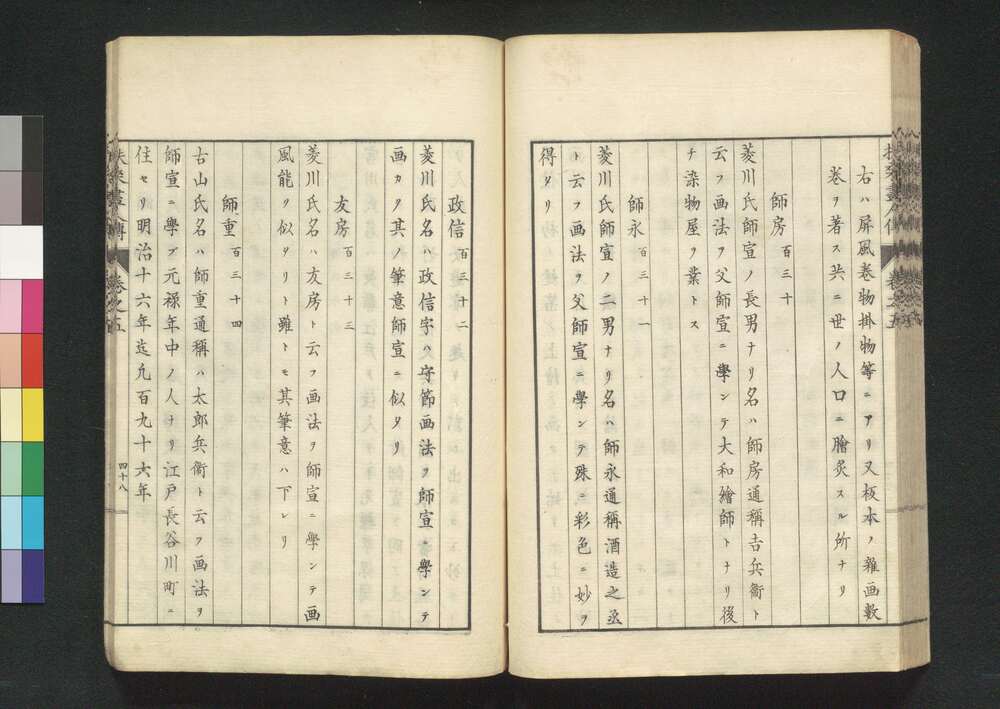 右ハ屏風巻物掛物等ニアリ又板本ノ雑画数
巻ヲ著ス共ニ世ノ人口ニ膾炙スル所ナリ
師房 百三十
菱川氏師宣ノ長男ナリ名ハ師房通稱吉兵衞ト
云フ画法ヲ父師宣ニ學ンテ大和繪師トナリ後
チ染物屋ヲ業トス
師永 百三十一
菱川氏師宣ノ二男ナリ名ハ師永通稱酒造之丞
ト云フ画法ヲ父師宣ニ學ンテ殊ニ彩色ニ妙ヲ
得タリ
政信 百三十二
菱川氏名ハ政信字ハ守節画法ヲ師宣ニ學ンテ
画カク其ノ筆意師宣ニ似タリ
友房 百三十三
菱川氏名ハ友房ト云フ画法ヲ師宣ニ學ンテ画
風能ク似タリト雖トモ其筆意ハ下レリ
師重 百三十四
古山氏名ハ師重通稱ハ太郎兵衞ト云フ画法ヲ
師宣ニ學ブ元禄年中ノ人ナリ江戸長谷川町ニ
住セリ明治十六年迄凢百九十六年
扶桑畫人傳 巻之五 四十八